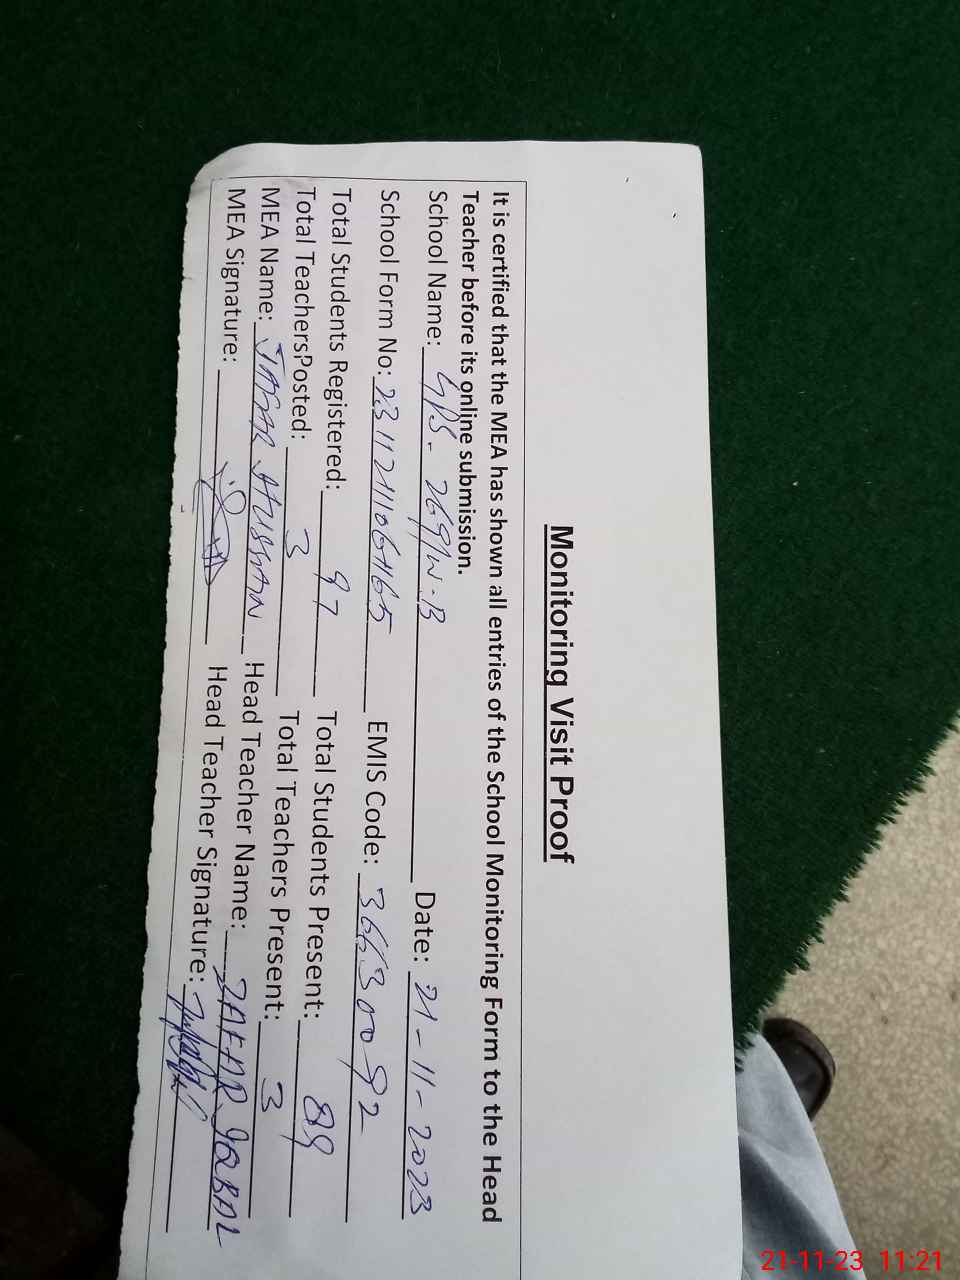 Monitoring Visit Proof
It is certified that the MEA has shown all entries of the School Monitoring Form to the Head
Teacher before its online submission.
School Name: GPS-269/W-B Date: 21-11-2023
School Form No: EMIS Code: 36630092
Total Students Registered: 97 Total Students Present: 89
Total TeachersPosted: 3 Total Teachers Present: 3
MEA Name: HUSSAIN Head Teacher Name: ZAFAR IQBAL
MEA Signature: Head Teacher Signature:
21-11-23 11:21